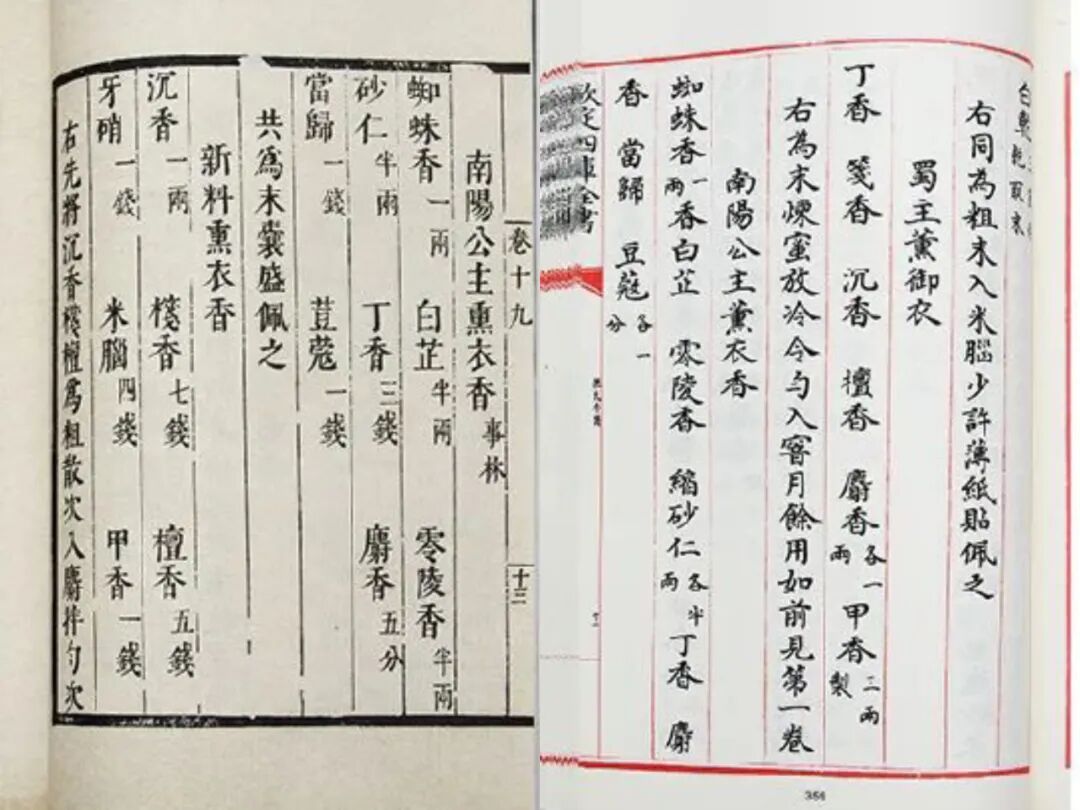 卷十九 十三
南陽公主熏衣香 事林
蜘蛛香 一兩 白芷 半兩 零陵香 半兩
砂仁 半兩 丁香 三錢 麝香 五分
當歸 一錢 荳蔲 一錢
共爲末囊盛佩之
新料熏衣香
沉香 一兩 棧香 七錢 檀香 五錢
牙硝 一錢 米腦 四錢 甲香 一錢
右先將沉香棧檀爲粗散次入麝拌勻次
右同為粗末入米腦少許薄紙貼佩之
蜀主薰御衣
丁香 箋香 沉香 檀香 麝香 各一兩 甲香 二兩製
右為末煉蜜放冷令勻入窨月餘用如前見第一卷
南陽公主薰衣香
蜘蛛香 一兩 香白芷 零陵香 縮砂仁 各半兩 丁香 麝
香 當歸 豆蔻 各一分
欽定四庫全書
354